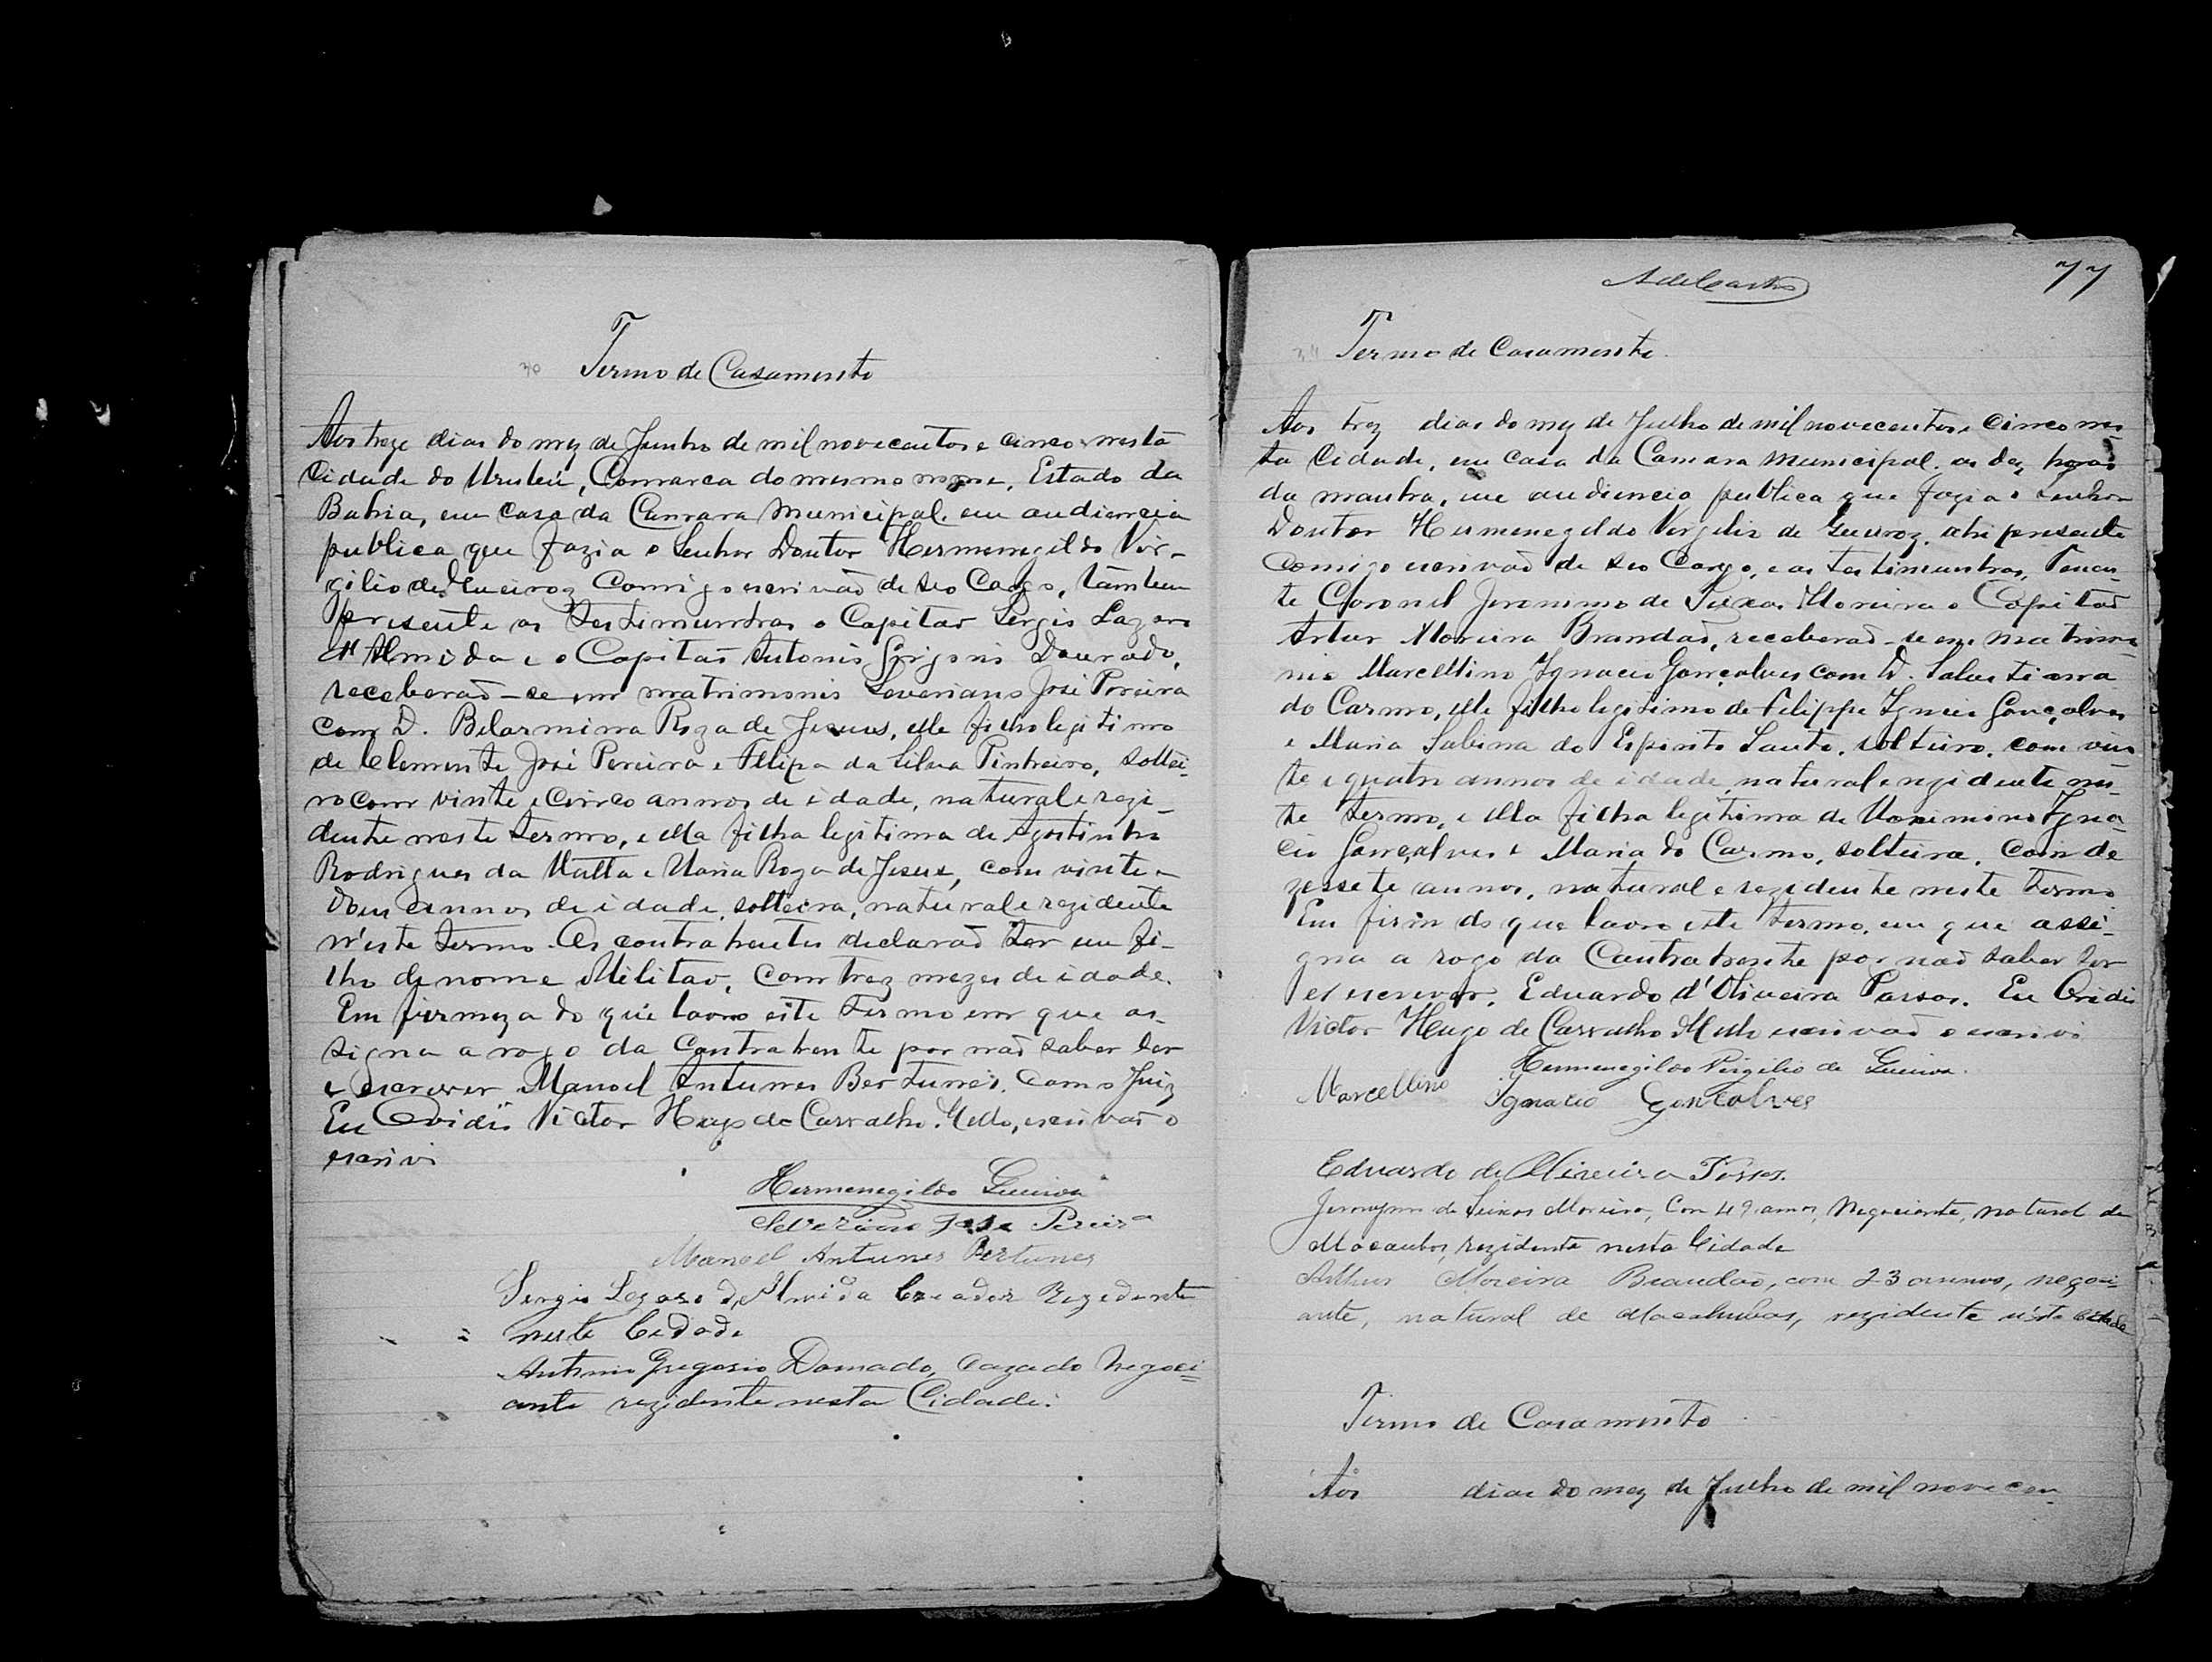 30 Termo de Casamento
Aos treze dias do mez de Junho de mil novecentos e cinco nesta
Cidade do Urubú, Comarca do mesmo nome, Estado da
Bahia, em casa da Camara Municipal, em audiencia
publica que fazia o Senhor Doutor Hermenegildo Vir-
gilio de Queiroz comigo escrivaõ de seo Cargo, tambem
presente as testimunhas o Capitaõ Sergio Lazaro
d'Almeida e o Capitaõ Antonio Grigorio Dourado,
receberaõ-se em matrimonio Severiano José Pereira
com D. Belarmina Roza de Jesus, elle filho legitimo
de Clemente José Pereira e Fellipa da Silva Pinheiro, soltei-
ro com vinte e cinco annos de idade, natural e rezi-
dente neste termo, e ella filha legitima de Agostinho
Rodrigues da Matta e Maria Roza de Jesus, com vinte e
dous annos de idade, solteira, natural e rezidente
n'este termo. Os contrahentes declaraõ ter um fi-
lho de nome Militaõ, com trez mezes de idade.
Em firmeza do que lavro este termo em que as-
signa a rogo da contrahente por naõ saber ler
e escrever Manoel Antunes Bertunes, com o Juiz
Eu Ovidio Victor Hugo de Carvalho Mello, escrivaõ o
escrivi
Hermenegildo Queiroz
Severiano José Pereira
Manoel Antunes Bertunes
Sergio Lazaro d'Almeida Creador Rezedente
nesta Cedade
Antonio Gregorio Dourado, Cazado Negoci=
ante rezidente nesta Cidade.
77
Termo de Casamento
Aos trez dias do mez de Julho de mil novecentos e cinco nes-
ta Cidade, em casa da Camara Municipal, as dez horas
da manha, em audiencia publica que fazia o Senhor
Doutor Hermenegildo Vergilio de Queiroz, ahi presente
comigo escrivaõ de seo Cargo, e as testimunhas, Tenen-
te Coronel Jeronimo de Seixas Moreira e Capitaõ
Artur Moreira Brandaõ, receberaõ-se em matrimo-
nio Marcellino Ignacio Gonçalves com D. Salustiana
do Carmo, elle filho legitimo de Filippe Ignacio Gonçalves
e Maria Sabina do Espirito Santo, solteiro, com vin-
te e quatro annos de idade, natural e rezidente nes-
te termo, e ella filha legitima de Maximino Igna-
cio Gonçalves e Maria do Carmo, solteira, com de
zessete annos, natural e rezidente neste termo
Em firm do que lavro este termo, em que assi-
gna a rogo da Contrahente por naõ saber ler
e escrever, Eduardo d'Oliveira Passos. Eu Ovidio
Victor Hugo de Carvalho Mello escrivaõ o escrivi
Hermenegildo Virgilio de Queiroz.
Marcellino Ignacio Gonçalves
Eduardo de Oliveira Passos.
Jeronymo de Seixas Moreira, Com 49 annos, Negociante, natural de
Macaubas, rezidente nesta Cidade
Arthur Moreira Brandaõ, com 23 annos, negoci-
ante, natural de Macahubas, rezidente n'esta cidade
Termo de Casamento
Aos dias do mez de Julho de mil novecen-